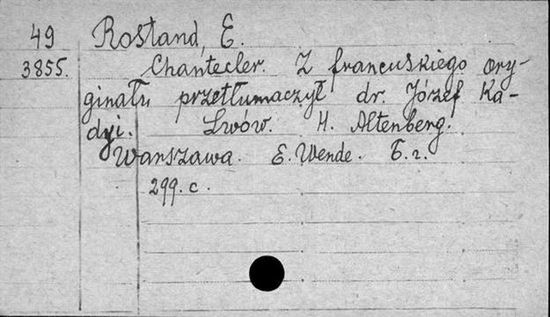 49 Rostand, E.
3855. Chantecler. Z francuskiego ory-
ginału przetłumaczył dr. Józef Ka-
dyi. Lwów. H. Altenberg.
Warszawa. E. Wende. Б. г.
299. с.